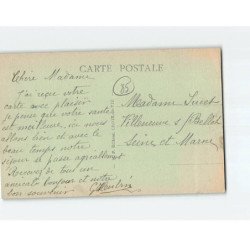 CARTE POSTALE
Chère Madame
J'ai reçue votre
carte avec plaisir
je pense que votre santé
est meilleure, ici nous
allons bien et avec le
beau temps notre
séjour se passe agréablement
Recevez de tout un
amicale bonjour et notre
bon souvenir
Madame
Villeneuve s/
Seine et Marne